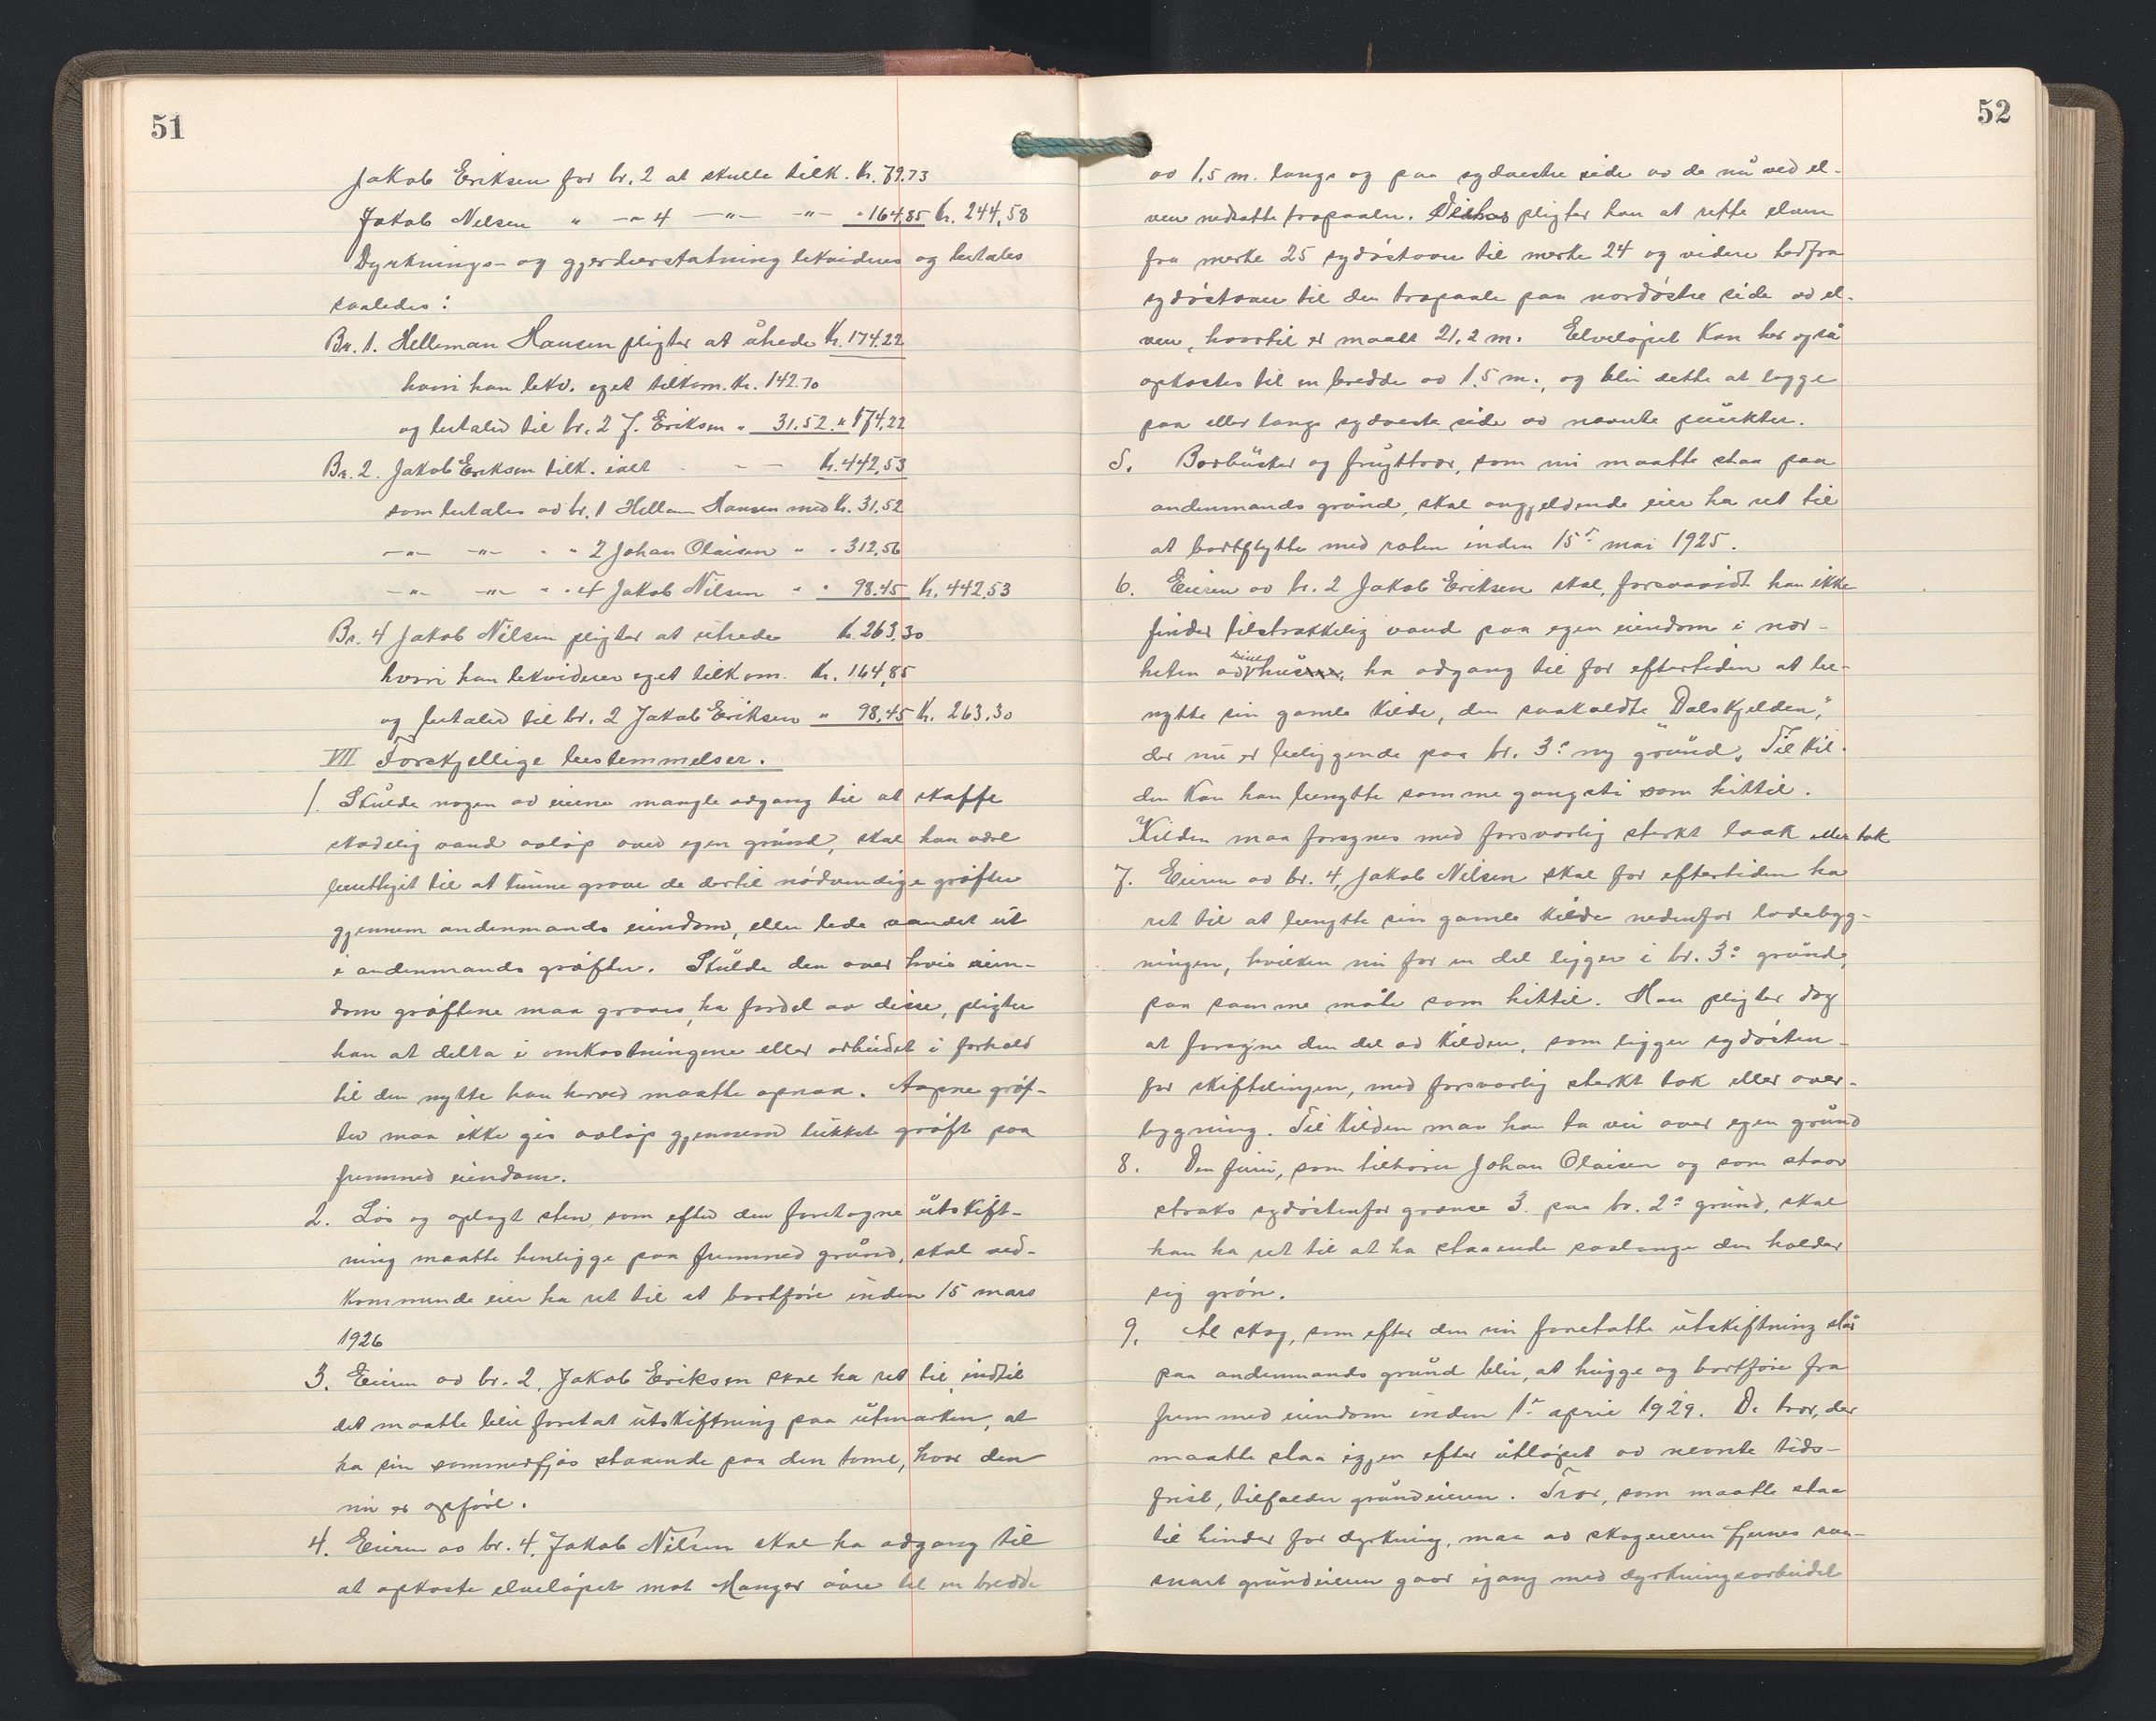 51
Jakob Eriksen for br. 2 at skulle tilk. Kr. 79.73
Jakob Nilsen " -"- 4 -"- -"- " 164,85 Kr. 244,58
Dyrknings- og gjerdeerstatning likvideres og betales
saaledes:
Br. 1. Helleman Hansen pligter at utrede Kr. 174.22
hvori han likv. eget tilkom. Kr. 142.70
og betaler til br. 2 J. Eriksen " 31.52 " 174,22
Br. 2. Jakob Eriksen tilk. ialt - - - Kr. 442,53
som betales av br. 1 Hellem Hansen med Kr. 31,52
-"- -"- " " 2 Johan Olaisen " " 312,56
-"- -"- " " 4 Jakob Nilsen " " 98.45 Kr. 442,53
Br. 4 Jakob Nilsen pligter at utrede Kr. 263,30
hvori han likviderer eget tilkom. Kr. 164,85
og betaler til br. 2 Jakob Eriksen " 98,45 Kr. 263,30
VII Forskjellige bestemmelser.
1. Skulde nogen av eierne mangle adgang til at skaffe
skadelig vand avløp over egen grund, skal han være
berettiget til at kunne grave de dertil nødvendige grøfter
gjennem andenmands eiendom, eller lede vandet ut
i andenmands grøfter. Skulde den over hvis eien-
dom grøftene maa graves, ha fordel av disse, pligter
han at delta i omkostningene eller arbeidet i forhold
til den nytte han herved maatte opnaa. Aapne grøf-
ter maa ikke gis avløp gjennem lukket grøft paa
fremmed eiendom.
2. Løs og oplagt sten, som efter den foretagne utskift-
ning maatte henligge paa fremmed grund, skal ved-
kommende eier ha ret til at bortføre inden 15 mars
1926
3. Eieren av br. 2, Jakob Eriksen skal ha ret til, indtil
det maatte blir foretat utskiftning paa utmarken, at
ha sin sommerfjøs staaende paa den tomt, hvor den
nu er opført.
4. Eieren av br. 4. Jakob Nilsen skal ha adgang til
at opkaste elveløpet mot Manger øvre til en bredde
52
av 1.5 m. langs og paa sydvestre side av de nu ved el-
ven nedsatte trapaaler. pligter han at rette elven
fra merke 25 sydøstover til merke 24 og videre herfra
sydøstover til den trapaale paa nordøstre side av el-
ven, hvortil er maalt 21,2 m. Elveløpet kan her også
opkastes til en bredde av 1.5 m., og blir dette at lægge
paa eller langs sydveste side av nævnte punkter.
5. Bærbusker og frugttrær, som nu maatte staa paa
andenmands grund, skal angjeldende eier ha ret til
at bortflytte med roten inden 15de mai 1925.
6. Eieren av br. 2 Jakob Eriksen skal, forsaavidt han ikke
finder tilstrækkelig vand paa egen eiendom i nær-
heten av sine hus, ha adgang til for eftertiden at be-
nytte sin gamle kilde, den saakaldte "Dalskjelden",
der nu er beliggende paa br. 3s ny grund. Til kil-
den kan han benytte samme gangsti som hittil.
Kilden maa forsynes med forsvarlig sterkt laak eller tak
7. Eieren av br. 4, Jakob Nilsen skal for eftertiden ha
ret til at benytte sin gamle kilde nedenfor ladebyg-
ningen, hvilken nu for en del ligger i br. 3s grund,
paa samme måte som hittil. Han pligter dog
at forsyne den del av kilden, som ligger sydøsten-
for skiftelinjen, med forsvarlig sterkt tak eller over-
bygning. Til kilden maa han ta vei over egen grund
8. Den furu, som tilhører Johan Olaisen og som staar
straks sydøstenfor grense 3 paa br. 2s grund, skal
han ha ret til at ha staaende saalenge den holder
sig grøn.
9. Al skog, som efter den nu foretatte utskiftning står
paa andenmands grund blir, at hugge og bortføre fra
fremmed eiendom inden 1ste april 1929. De trær, der
maatte staa igjen efter utløpet av nevnte tids-
frist, tilfalder grundeieren. Trær, som maatte staa
til hinder for dyrkning, maa av skogeieren fjernes saa-
snart grundeieren gaar igang med dyrkningsarbeidet